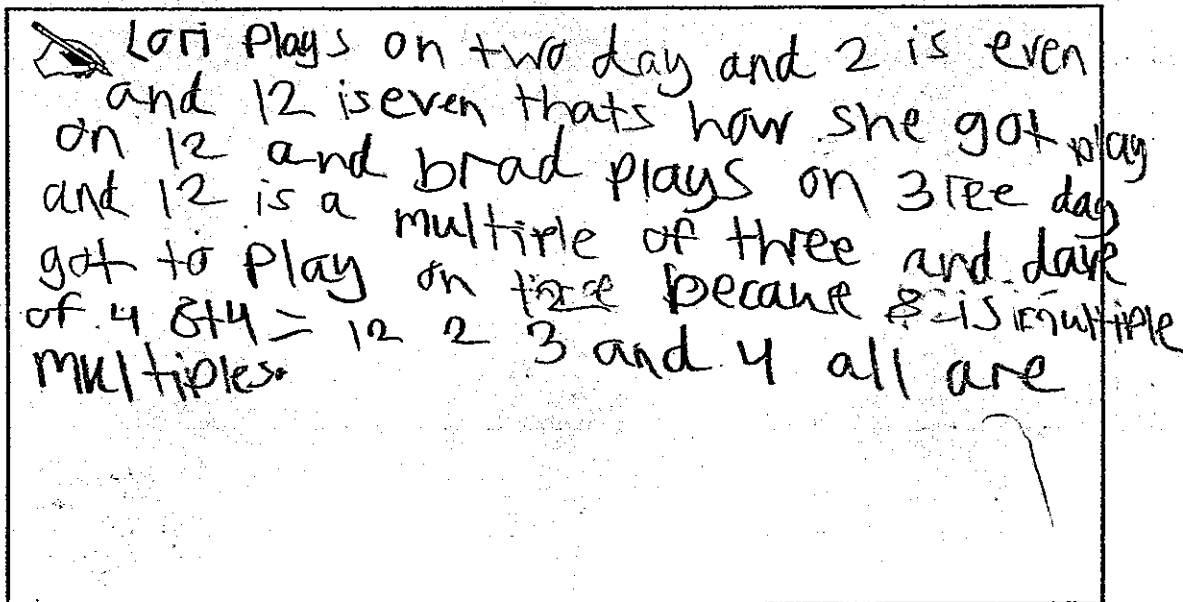 Lori plays on two day and 2 is even
and 12 is even thats how she got play
on 12 and brad plays on 3ree day
and 12 is a multiple of three and dave
got to play on because 8 is multiple
of 4 8+4 = 12 2 3 and 4 all are
multiples.